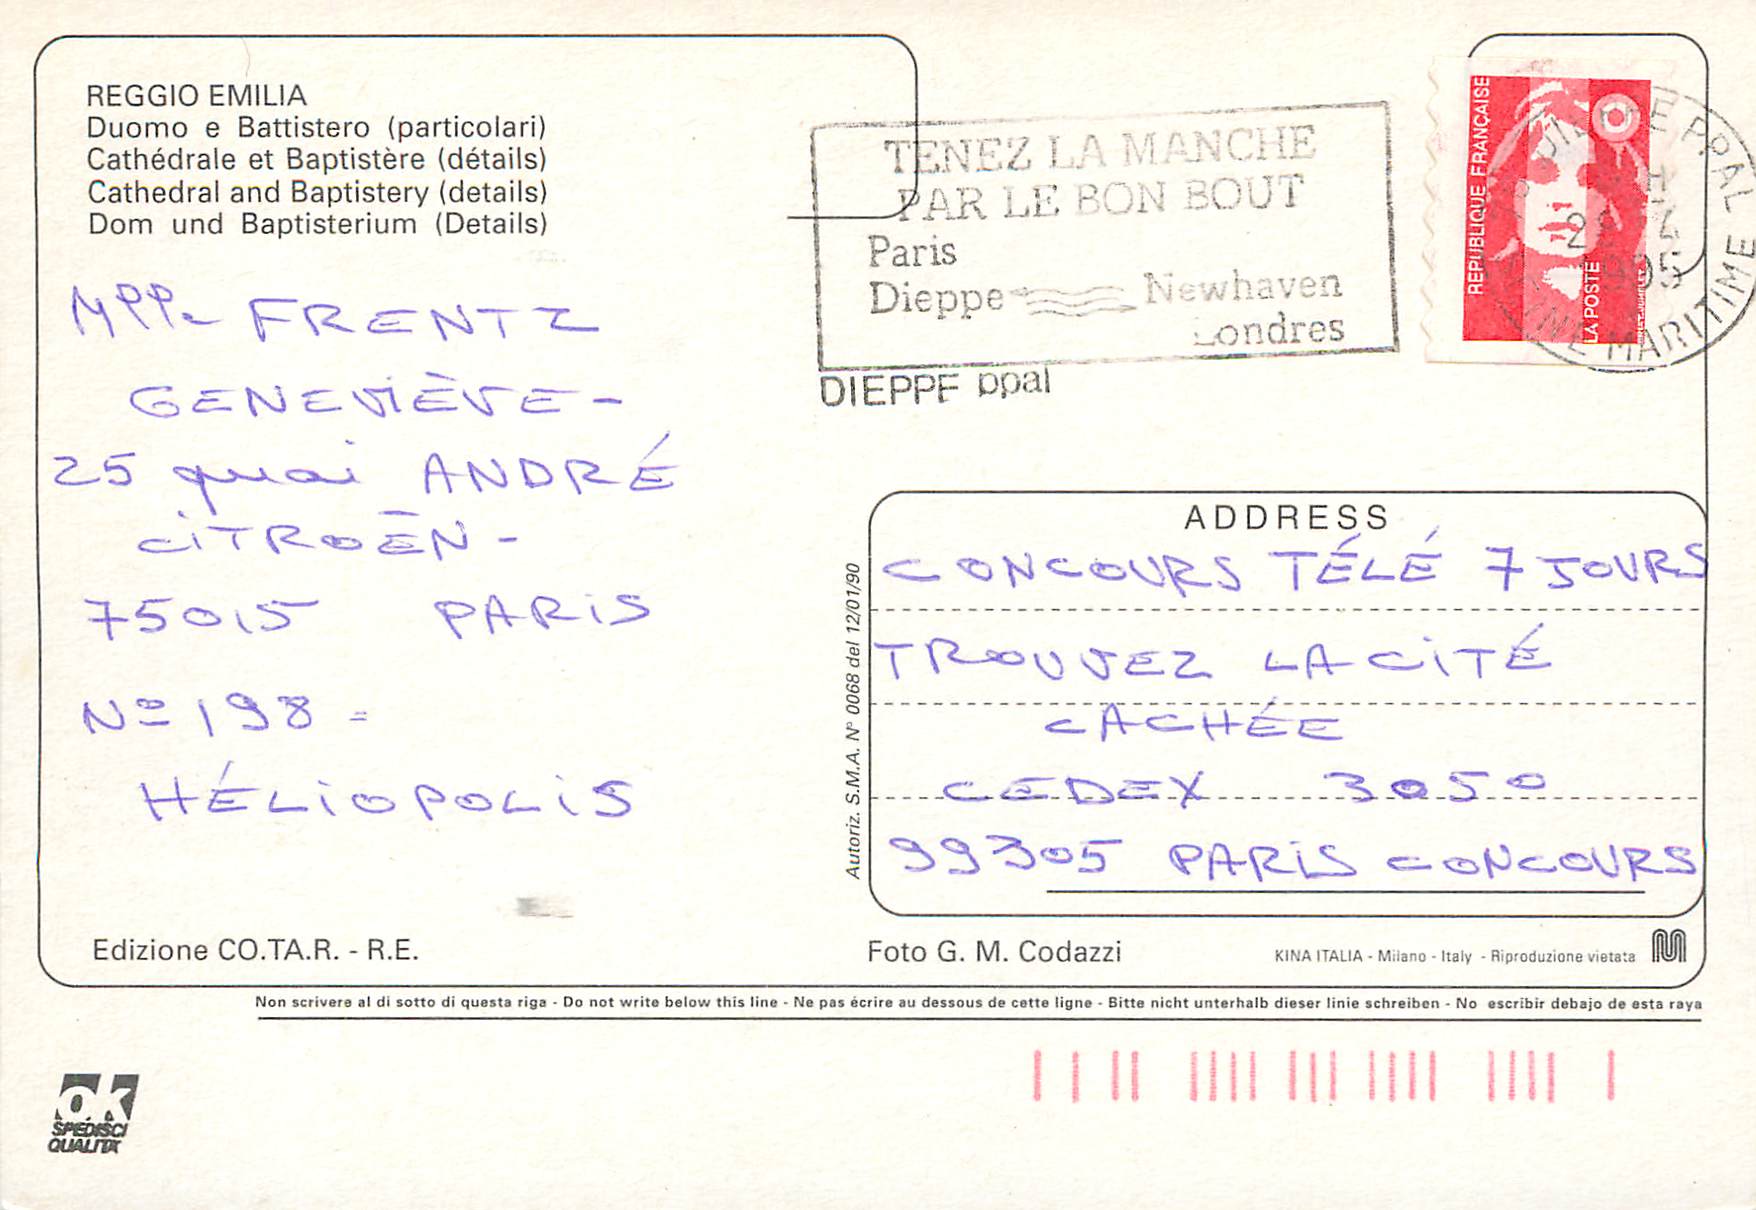 REGGIO EMILIA
Duomo e Battistero (particolari)
Cathédrale et Baptistère (détails)
Cathedral and Baptistery (details)
Dom und Baptisterium (Details)
Mlle FRENTZ
GENEVIÈVE-
25 quai ANDRÉ
CITROËN-
75015 PARIS
Nº 198 =
HÉLIOPOLIS
TENEZ LA MANCHE
PAR LE BON BOUT
Paris
Dieppe Newhaven
Londres
DIEPPE ppal
REPUBLIQUE FRANÇAISE
LA POSTE
DIEPPE PPAL
MARITIME
ADDRESS
CONCOURS TÉLÉ 7 JOURS
TROUVEZ LA CITÉ
CACHÉE
CEDEX 3050
99305 PARIS CONCOURS
Autoriz. S.M.A. N° 0068 del 12/01/90
Edizione CO.TA.R. - R.E.
Foto G. M. Codazzi
KINA ITALIA - Milano - Italy - Riproduzione vietata
Non scrivere al di sotto di questa riga - Do not write below this line - Ne pas écrire au dessous de cette ligne - Bitte nicht unterhalb dieser linie schreiben - No escribir debajo de esta raya
OK
SPEDISCI
QUALITA'